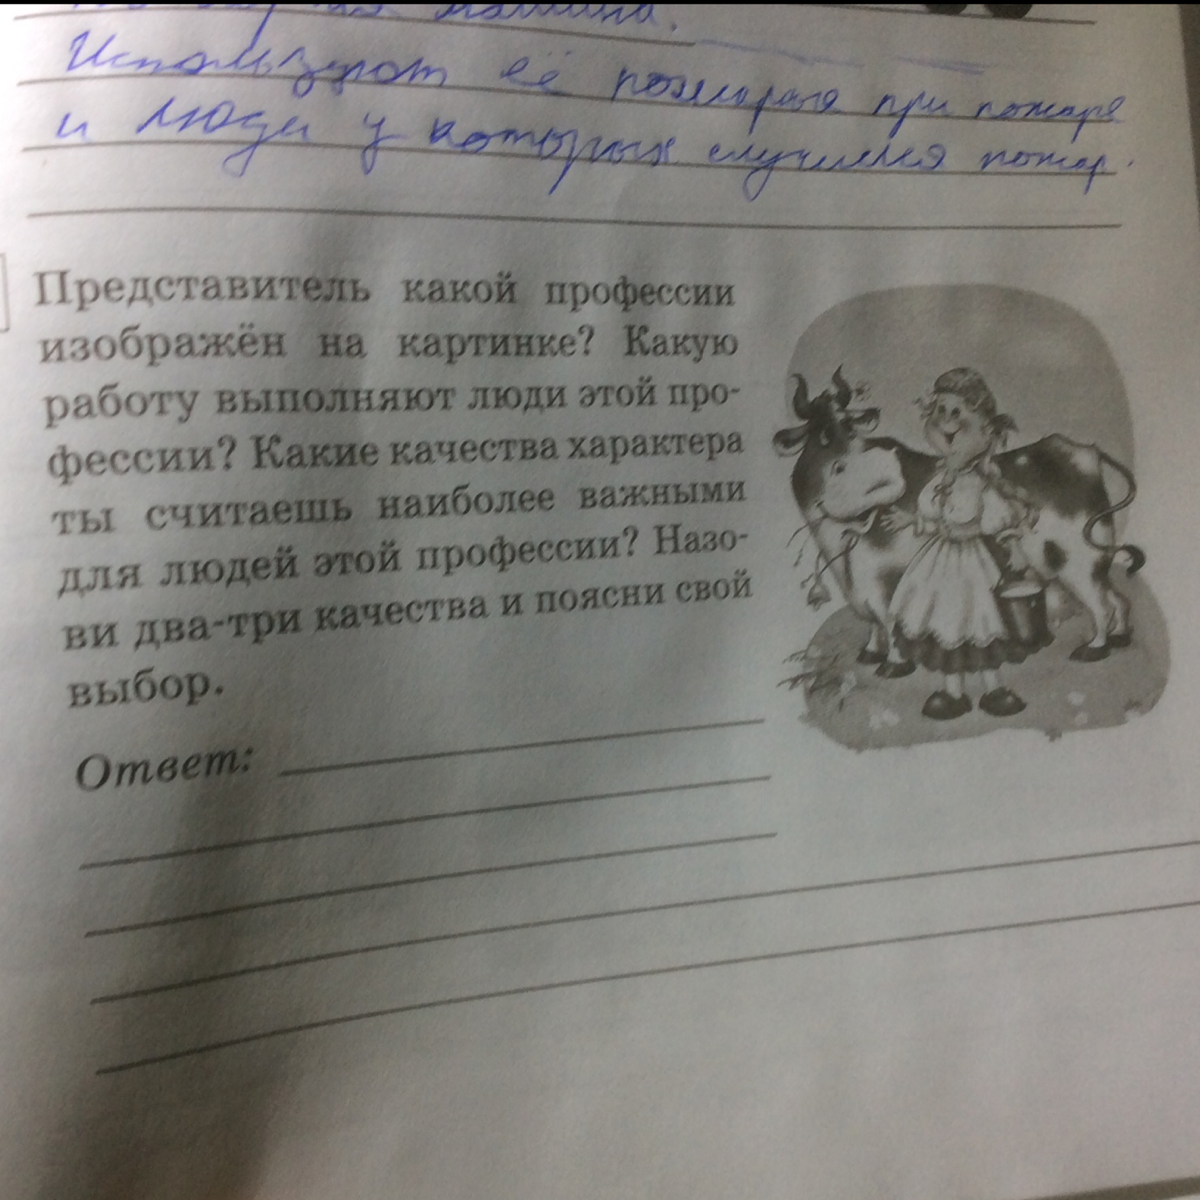 машина.
Используют её пожарыя при пожаре
и люди у которых случился пожар.
Представитель какой профессии
изображён на картинке? Какую
работу выполняют люди этой про-
фессии? Какие качества характера
ты считаешь наиболее важными
для людей этой профессии? Назо-
ви два-три качества и поясни свой
выбор.
Ответ: